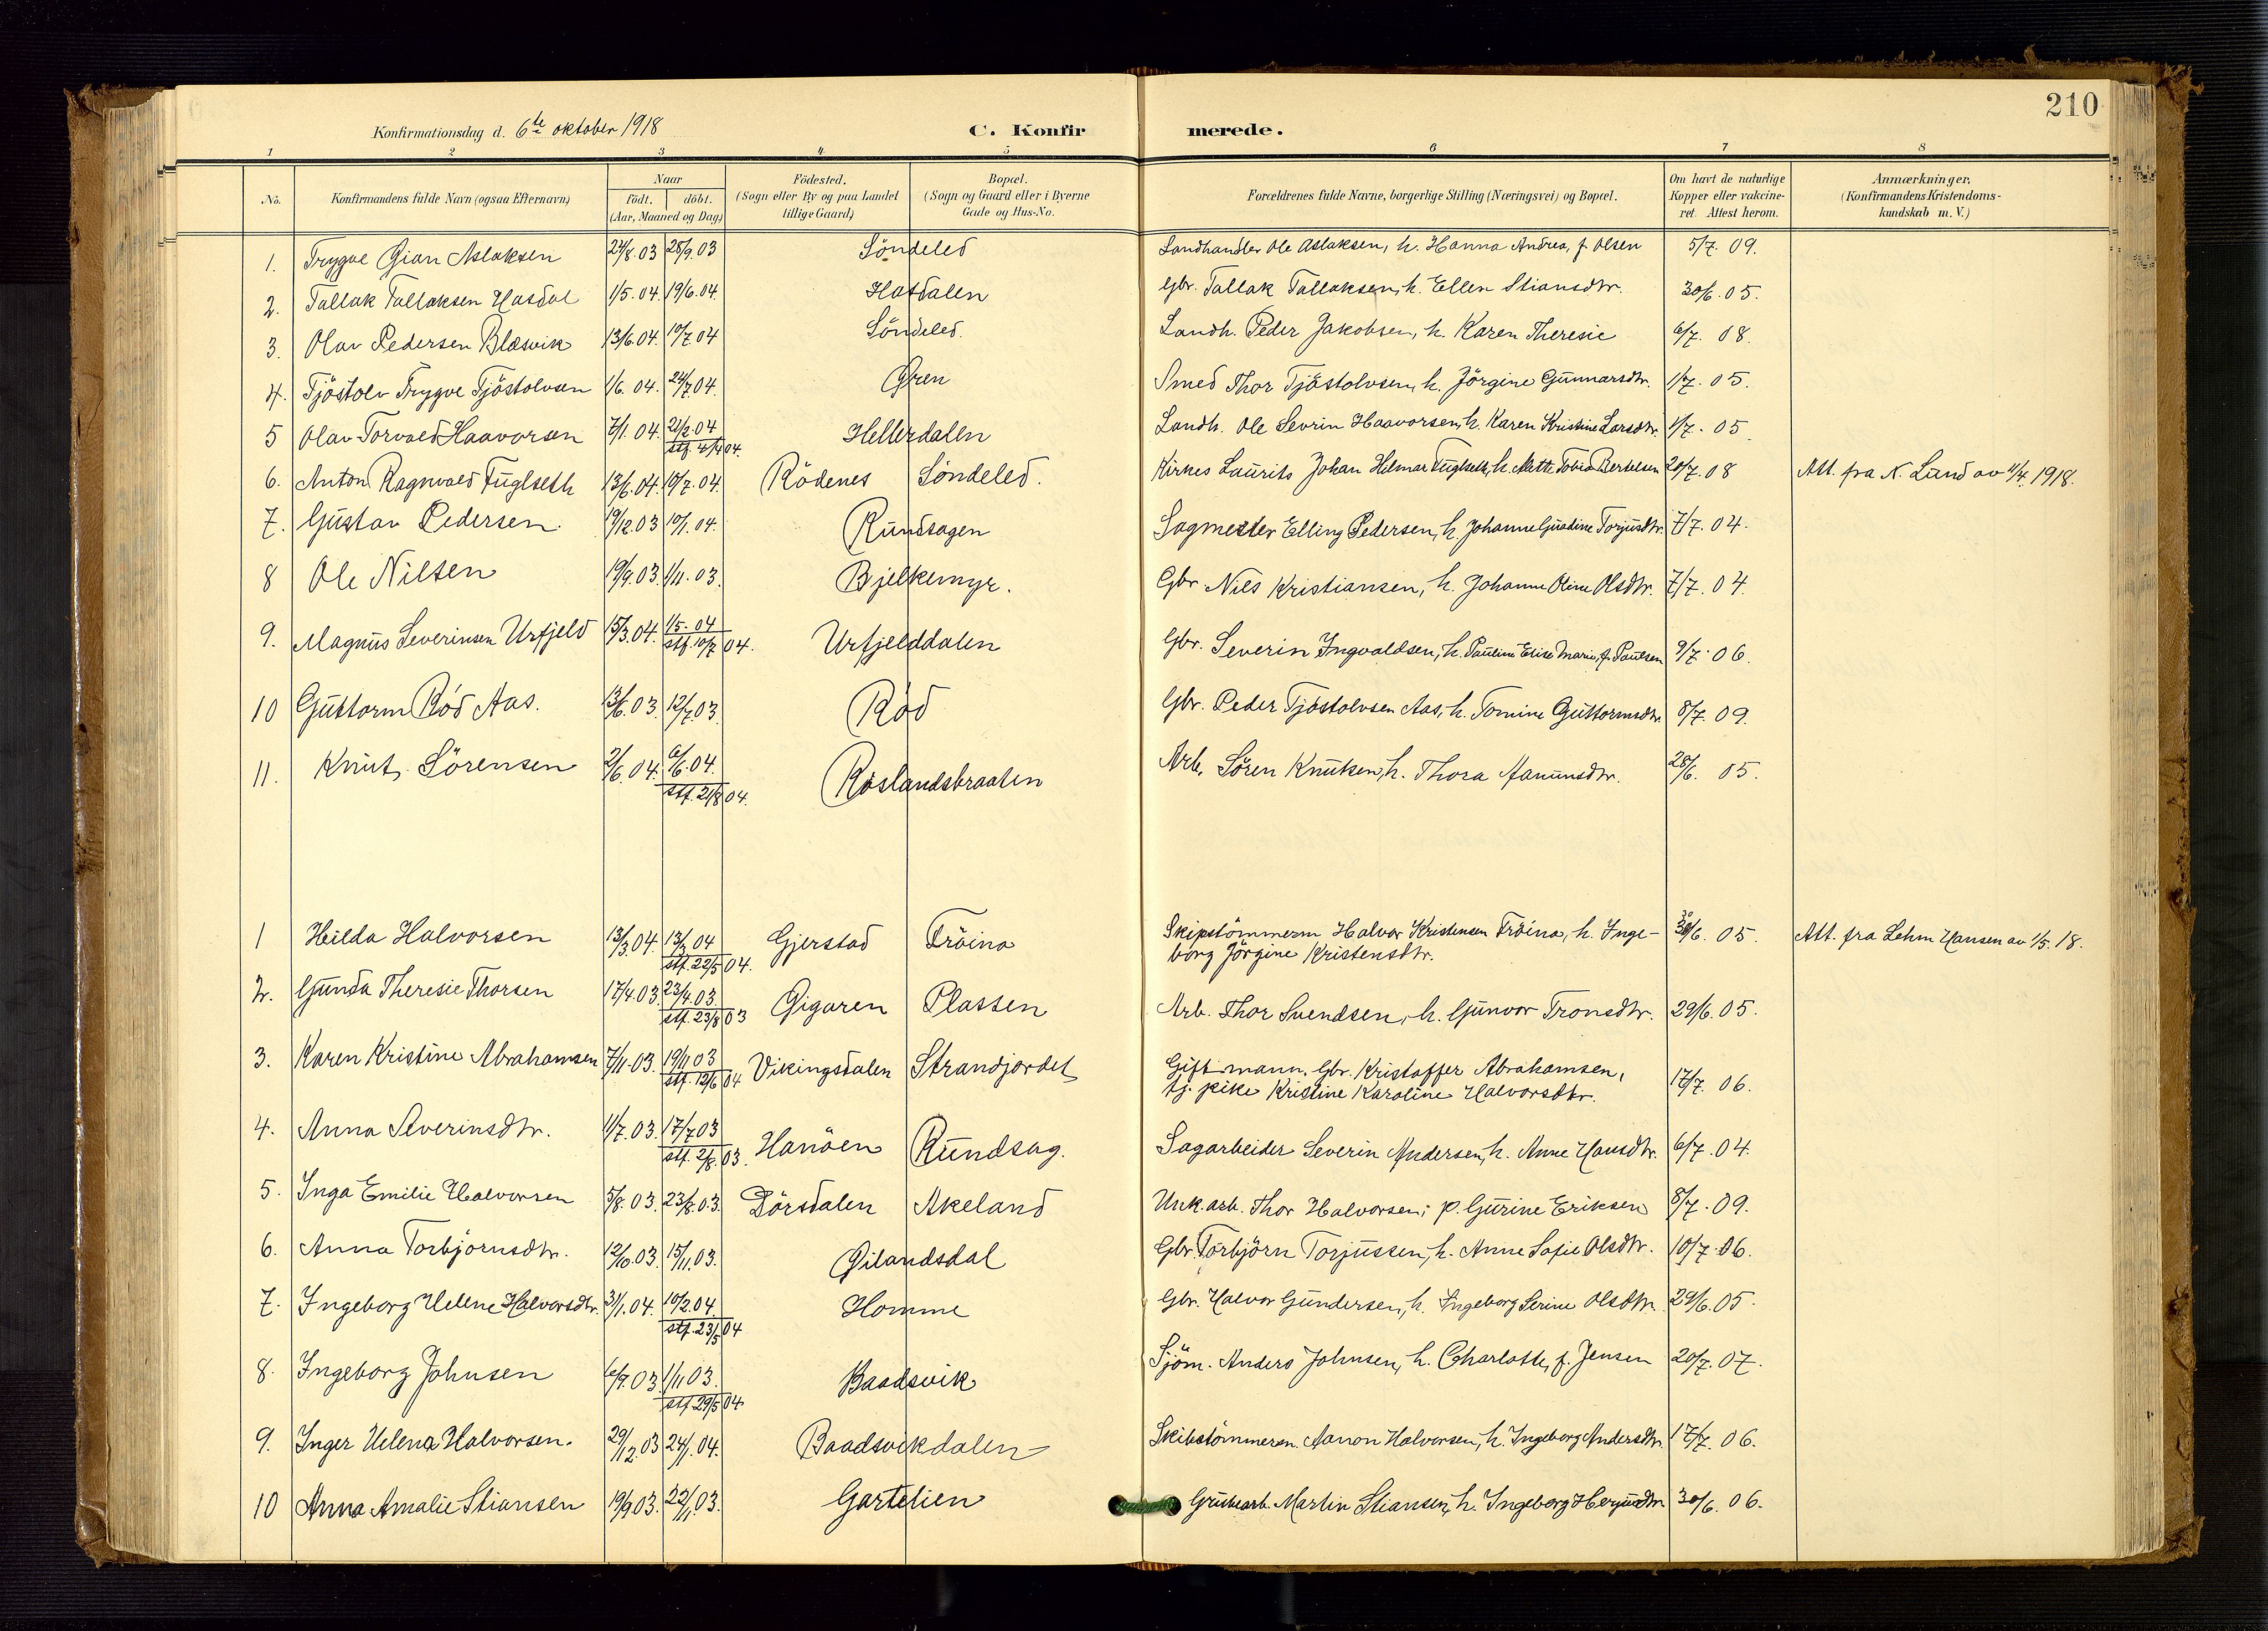 210
Konfirmationsdag d. 6te oktober 1918
C. Konfirmerede.
1 2 3 4 5 6 7 8
No. Konfirmandens fulde Navn (ogsaa Efternavn) Naar födt. döbt. (Aar, Maaned og Dag) Födested. (Sogn eller By og paa Landet tillige Gaard) Bopæl. (Sogn og Gaard eller i Byerne Gade og Hus-No. Forældrenes fulde Navne, borgerlige Stilling (Næringsvei) og Bopæl. Om havt de naturlige Kopper eller vakcineret. Attest herom. Anmærkninger. (Konfirmandens Kristendomskundskab m. V.)
1. Trygve Gian Aslaksen 24/8.03 28/9.03 Söndeled Landhandler Ole Aslaksen, h. Hanna Andrea, f. Olsen 5/7. 09.
2. Tallak Tallaksen Hasdal 1/5.04. 19/6.04. Hasdalen Gbr. Tallak Tallaksen, h. Ellen Stiansdtr. 30/6.05.
3. Olav Pedersen Blæsvik 13/6.04. 10/7.04 Söndeled. Landh. Peder Jakobsen, h. Karen Theresie 6/7. 08.
4. Tjöstolv Trygve Tjöstolvsen 1/6.04. 24/7.04. Gren Smed Thor Tjöstolvsen, h. Jörgine Gunnarsdtr. 1/7.05.
5 Olav Torvald Haavorsen 7/1.04. 21/2.04 stf. 4/4 04. Hellerdalen Landh. Ole Sevrin Haavorsen, h. Karen Kristine Larsdtr. 1/7.05.
6. Anton Ragnvald Fuglseth 13/6.04. 10/7.04. Rödenes Söndeled. Kirkes Laurits Johan Helmar Fuglseth, h. Tobia Bertelsen 20/7.08 Att. fra N. Lund av 11/4.1918.
7. Gustav Pedersen. 19/12.03 10/1.04. Rundsagen Sagmester Elling Pedersen, h. Johanne Torjusdtr. 7/7.04.
8 Ole Nilsen 19/9.03. 1/11.03. Bjelkemyr. Gbr. Nils Kristiansen, h. Johanne Oline Olsdtr. 7/7.04.
9. Magnus Severinsen Urfjeld 15/3.04. 1/5.04 stf. 10/7 04. Urfjelddalen Gbr. Severin Ingvaldsen, h. Pauline Elise Marie, f. Paulsen 9/7.06.
10 Guttorm Röd Aas. 13/6.03. 12/7.03. Röd Gbr. Peder Tjöstolvsen Aas, h. Tomine Guttormsdtr. 8/7.09.
11. Knut Sörensen 2/6.04. 6/6.04. stf. 21/8 04. Röslandsbraaten Arb. Sören Knutsen, h. Thora Aanunsdtr. 28/6. 05.
1 Hilda Halvorsen 13/3.04. 13/3 04 stf. 22/5 04. Gjerstad Tröina Skipstömmerm Halvor Kristensen Tröina, h. Inge-
borg Jörgine Kristensdtr. 30/6.05. Att. fra Lehm Hansen av 1/5.18.
2. Gunda Theresie Thorsen 17/4.03. 23/4.03. stf. 23/8 03 Gigaren Plassen Arb. Thor Svendsen, h. Gunvor Tronsdtr. 29/6.05.
3. Karen Kristine Abrahamsen 7/11.03. 19/11 03 stf. 12/6 04 Vikingsdalen Strandjordet Gift mann. Gbr. Kristoffer Abrahamsen,
tj. pike Kristine Karoline Halvorsdtr. 17/7.06.
4. Anna Severinsdtr. 11/7.03. 17/7 03 stf. 2/8.03. Hanöen Rundsag. Sagarbeider Severin Andersen, h. Anne Hansdtr. 6/7.04.
5. Inga Emilie Halvorsen 5/8.03. 23/8.03. Dörsdalen Akeland Unk.arb. Thor Halvorsen; p. Gurine Eriksen 8/7.09.
6. Anna Torbjörnsdtr. 12/10.03. 15/11.03. Öilandsdal Gbr. Torbjörn Torjussen, h. Anne Sofie Olsdtr. 10/7.06.
7. Ingeborg Helene Halvorsdtr. 31/1.04. 10/2.04. stf. 23/5 04 Homme Gbr. Halvor Gundersen, h. Ingeborg Serine Olsdtr. 29/6.05.
8. Ingeborg Johnsen 6/9.03 1/11 03. stf. 29/5 04 Baadsvik Sjöm. Anders Johnsen, h. Charlotte, f. Jensen 20/7.07.
9. Inger Helena Halvorsen. 29/12.03 24/1.04. Baadsvikdalen Skibstömmerm. Aanon Halvorsen, h. Ingeborg Andersdtr. 17/7.06.
10 Anna Amalie Stiansen 19/9 03. 22/11.03. Gartelien Grubearb. Martin Stiansen, h. Ingeborg Herjusdtr 30/6.06.